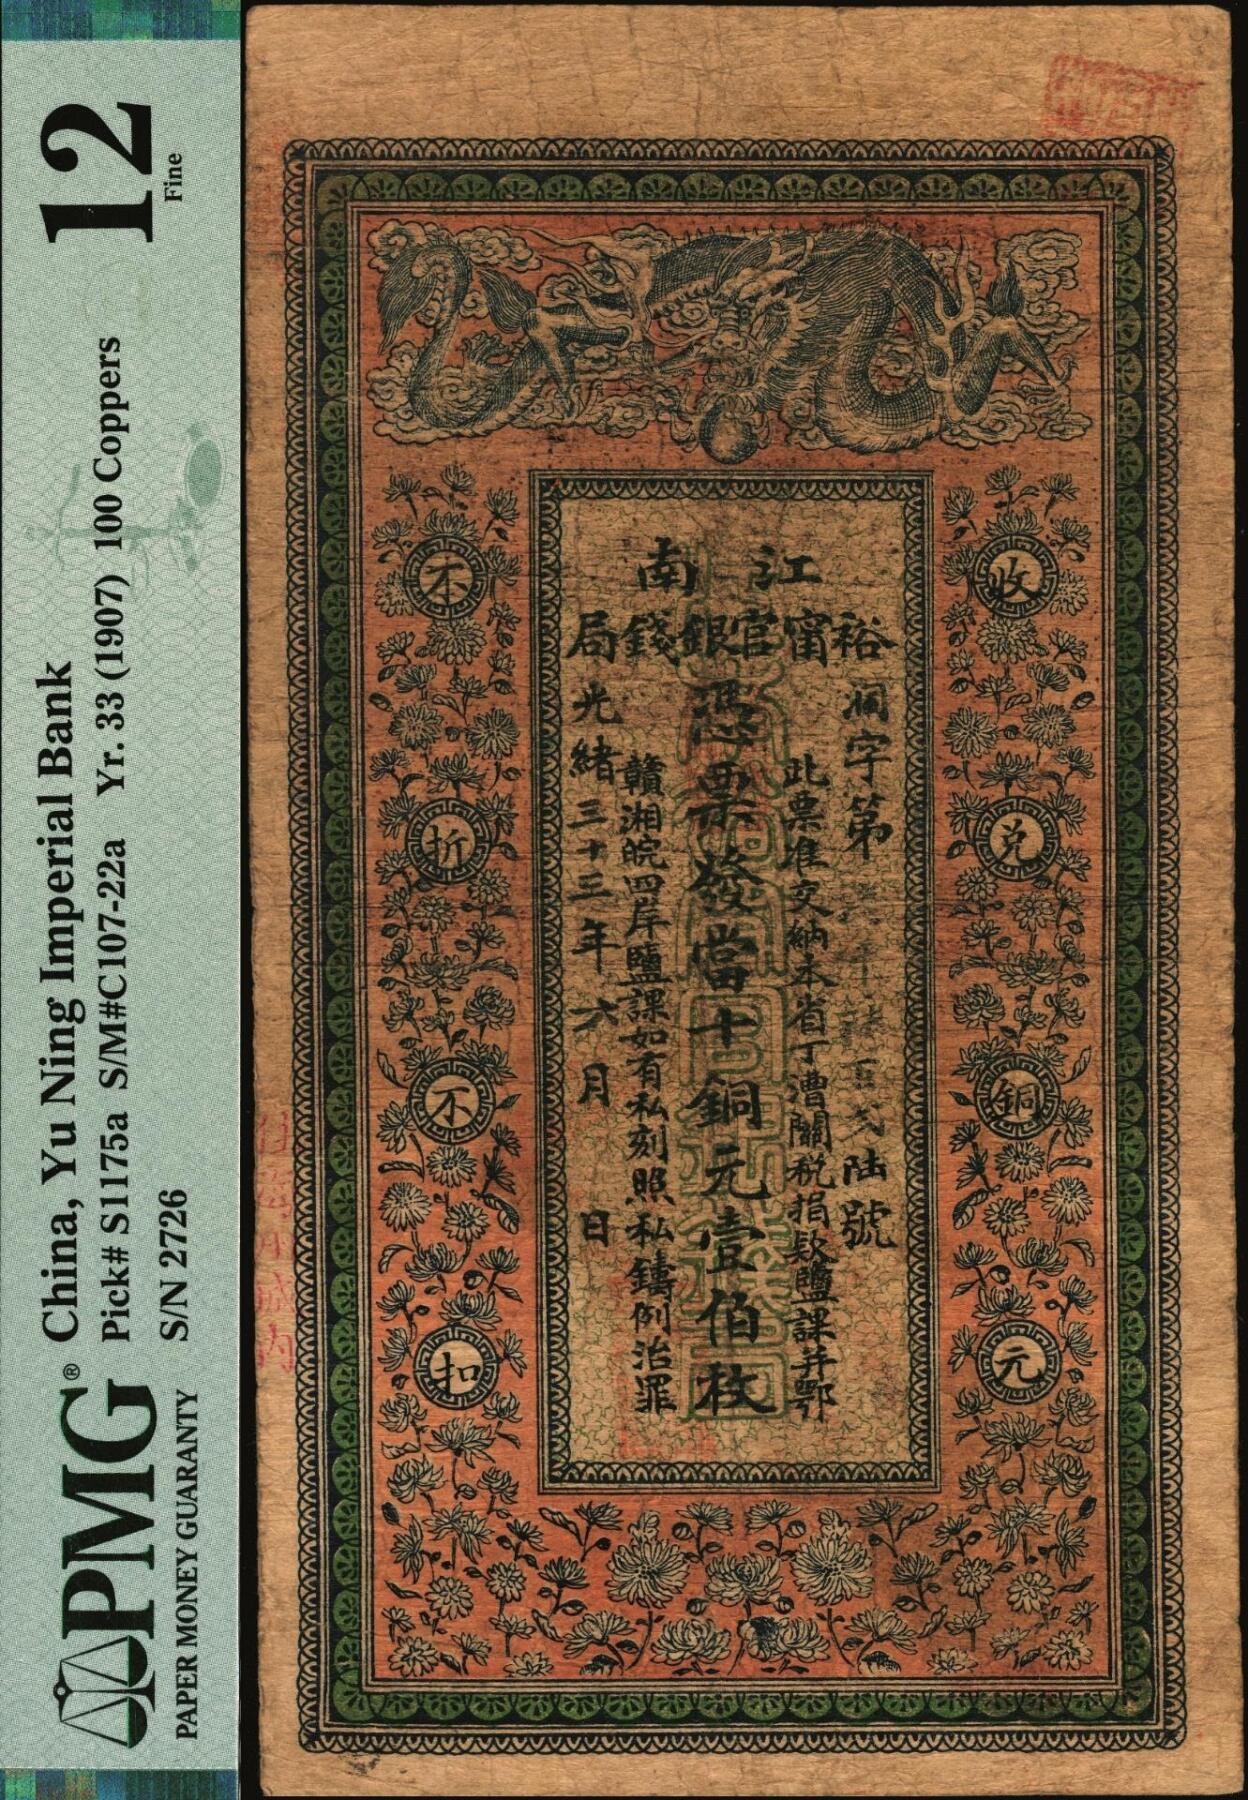 12
Fine
China, Yu Ning Imperial Bank
Pick# S1175a S/M#C107-22a Yr. 33 (1907) 100 Coppers
S/N 2726
PMG®
PAPER MONEY GUARANTY
江南
裕甯官銀錢局
字第
陸號
此票准交納本省丁漕關稅捐欵鹽課并鄂
憑票發當十銅元壹伯枚
贛湘皖四岸鹽課如有私刻照私鑄例治罪
光緒三十三年六月 日
收兌銅元
不折不扣